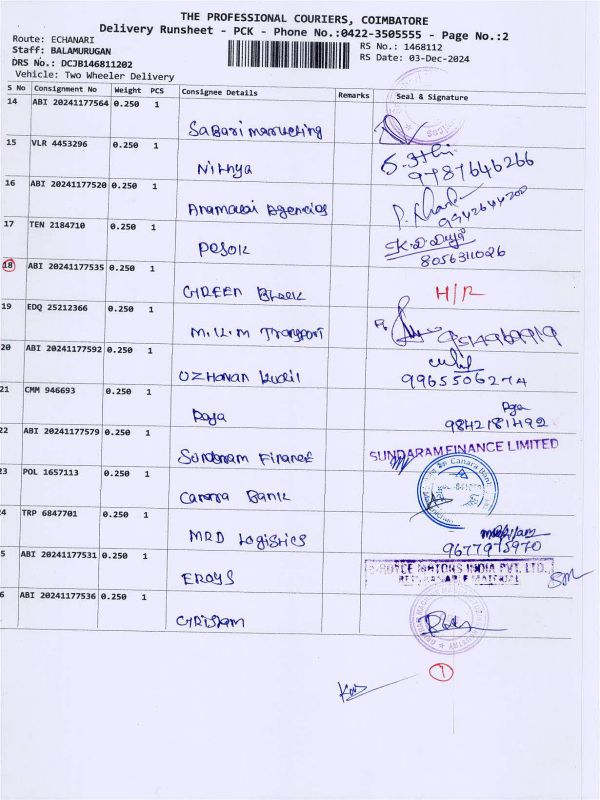 THE PROFESSIONAL COURIERS, COIMBATORE
Delivery Runsheet - PCK - Phone No.:0422-3505555 - Page No.:2
Route: ECHANARI
Staff: BALAMURUGAN
RS No.: 1468112
DRS No.: DCJB146811202
RS Date: 03-Dec-2024
Vehicle: Two Wheeler Delivery
S No Consignment No Weight PCS Consignee Details Remarks Seal & Signature
14 ABI 20241177564 0.250 1
Sabari marrueting
15 VLR 4453296 0.250 1
Nithya 9787646266
16 ABI 20241177520 0.250 1
Anamalai Agencies 9942644200
17 TEN 2184710 0.250 1
Pesok K.D.Durga 8056311026
18 ABI 20241177535 0.250 1
GREEN H/R
19 EDQ 25212366 0.250 1
M.K.M Transport
20 ABI 20241177592 0.250 1
UZHAVAN 9965506274
21 CMM 946693 0.250 1
Roja Roja 9842181492
22 ABI 20241177579 0.250 1
Sundaram Finance SUNDARAM FINANCE LIMITED
23 POL 1657113 0.250 1
Canara Bank Canara Bank
24 TRP 6847701 0.250 1
MRD Logistics 9677975970
5 ABI 20241177531 0.250 1
EROYS ROYCE MOTORS INDIA PVT. LTD.
RETURNABLE MATERIAL
6 ABI 20241177536 0.250 1